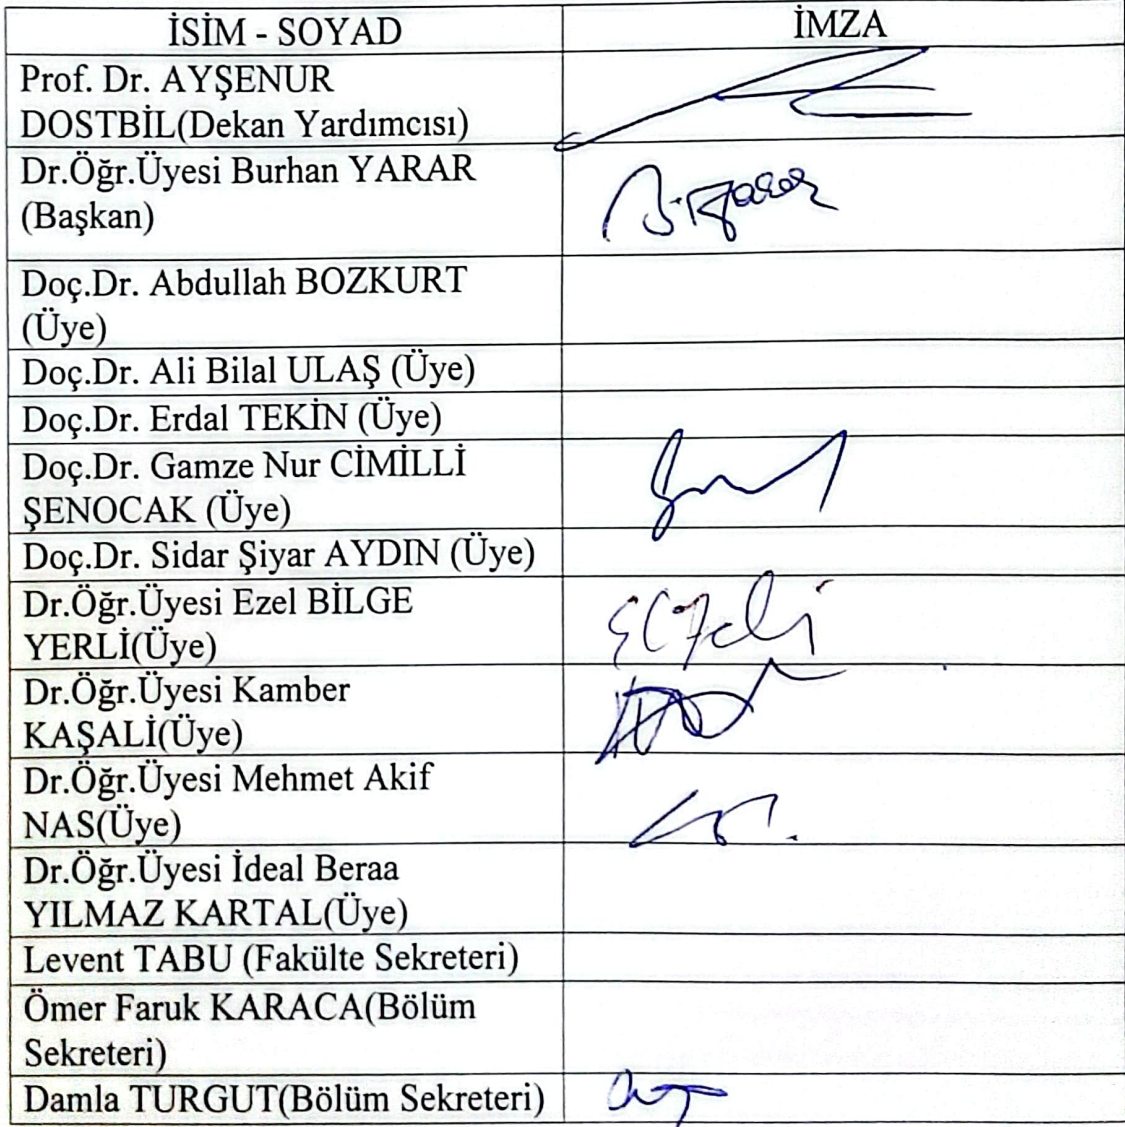 İSİM - SOYAD
İMZA
Prof. Dr. AYŞENUR
DOSTBİL(Dekan Yardımcısı)
Dr.Öğr.Üyesi Burhan YARAR
(Başkan)
Doç.Dr. Abdullah BOZKURT
(Üye)
Doç.Dr. Ali Bilal ULAŞ (Üye)
Doç.Dr. Erdal TEKİN (Üye)
Doç.Dr. Gamze Nur CİMİLLİ
ŞENOCAK (Üye)
Doç.Dr. Sidar Şiyar AYDIN (Üye)
Dr.Öğr.Üyesi Ezel BİLGE
YERLİ(Üye)
Dr.Öğr.Üyesi Kamber
KAŞALİ(Üye)
Dr.Öğr.Üyesi Mehmet Akif
NAS(Üye)
Dr.Öğr.Üyesi İdeal Beraa
YILMAZ KARTAL(Üye)
Levent TABU (Fakülte Sekreteri)
Ömer Faruk KARACA(Bölüm
Sekreteri)
Damla TURGUT(Bölüm Sekreteri)